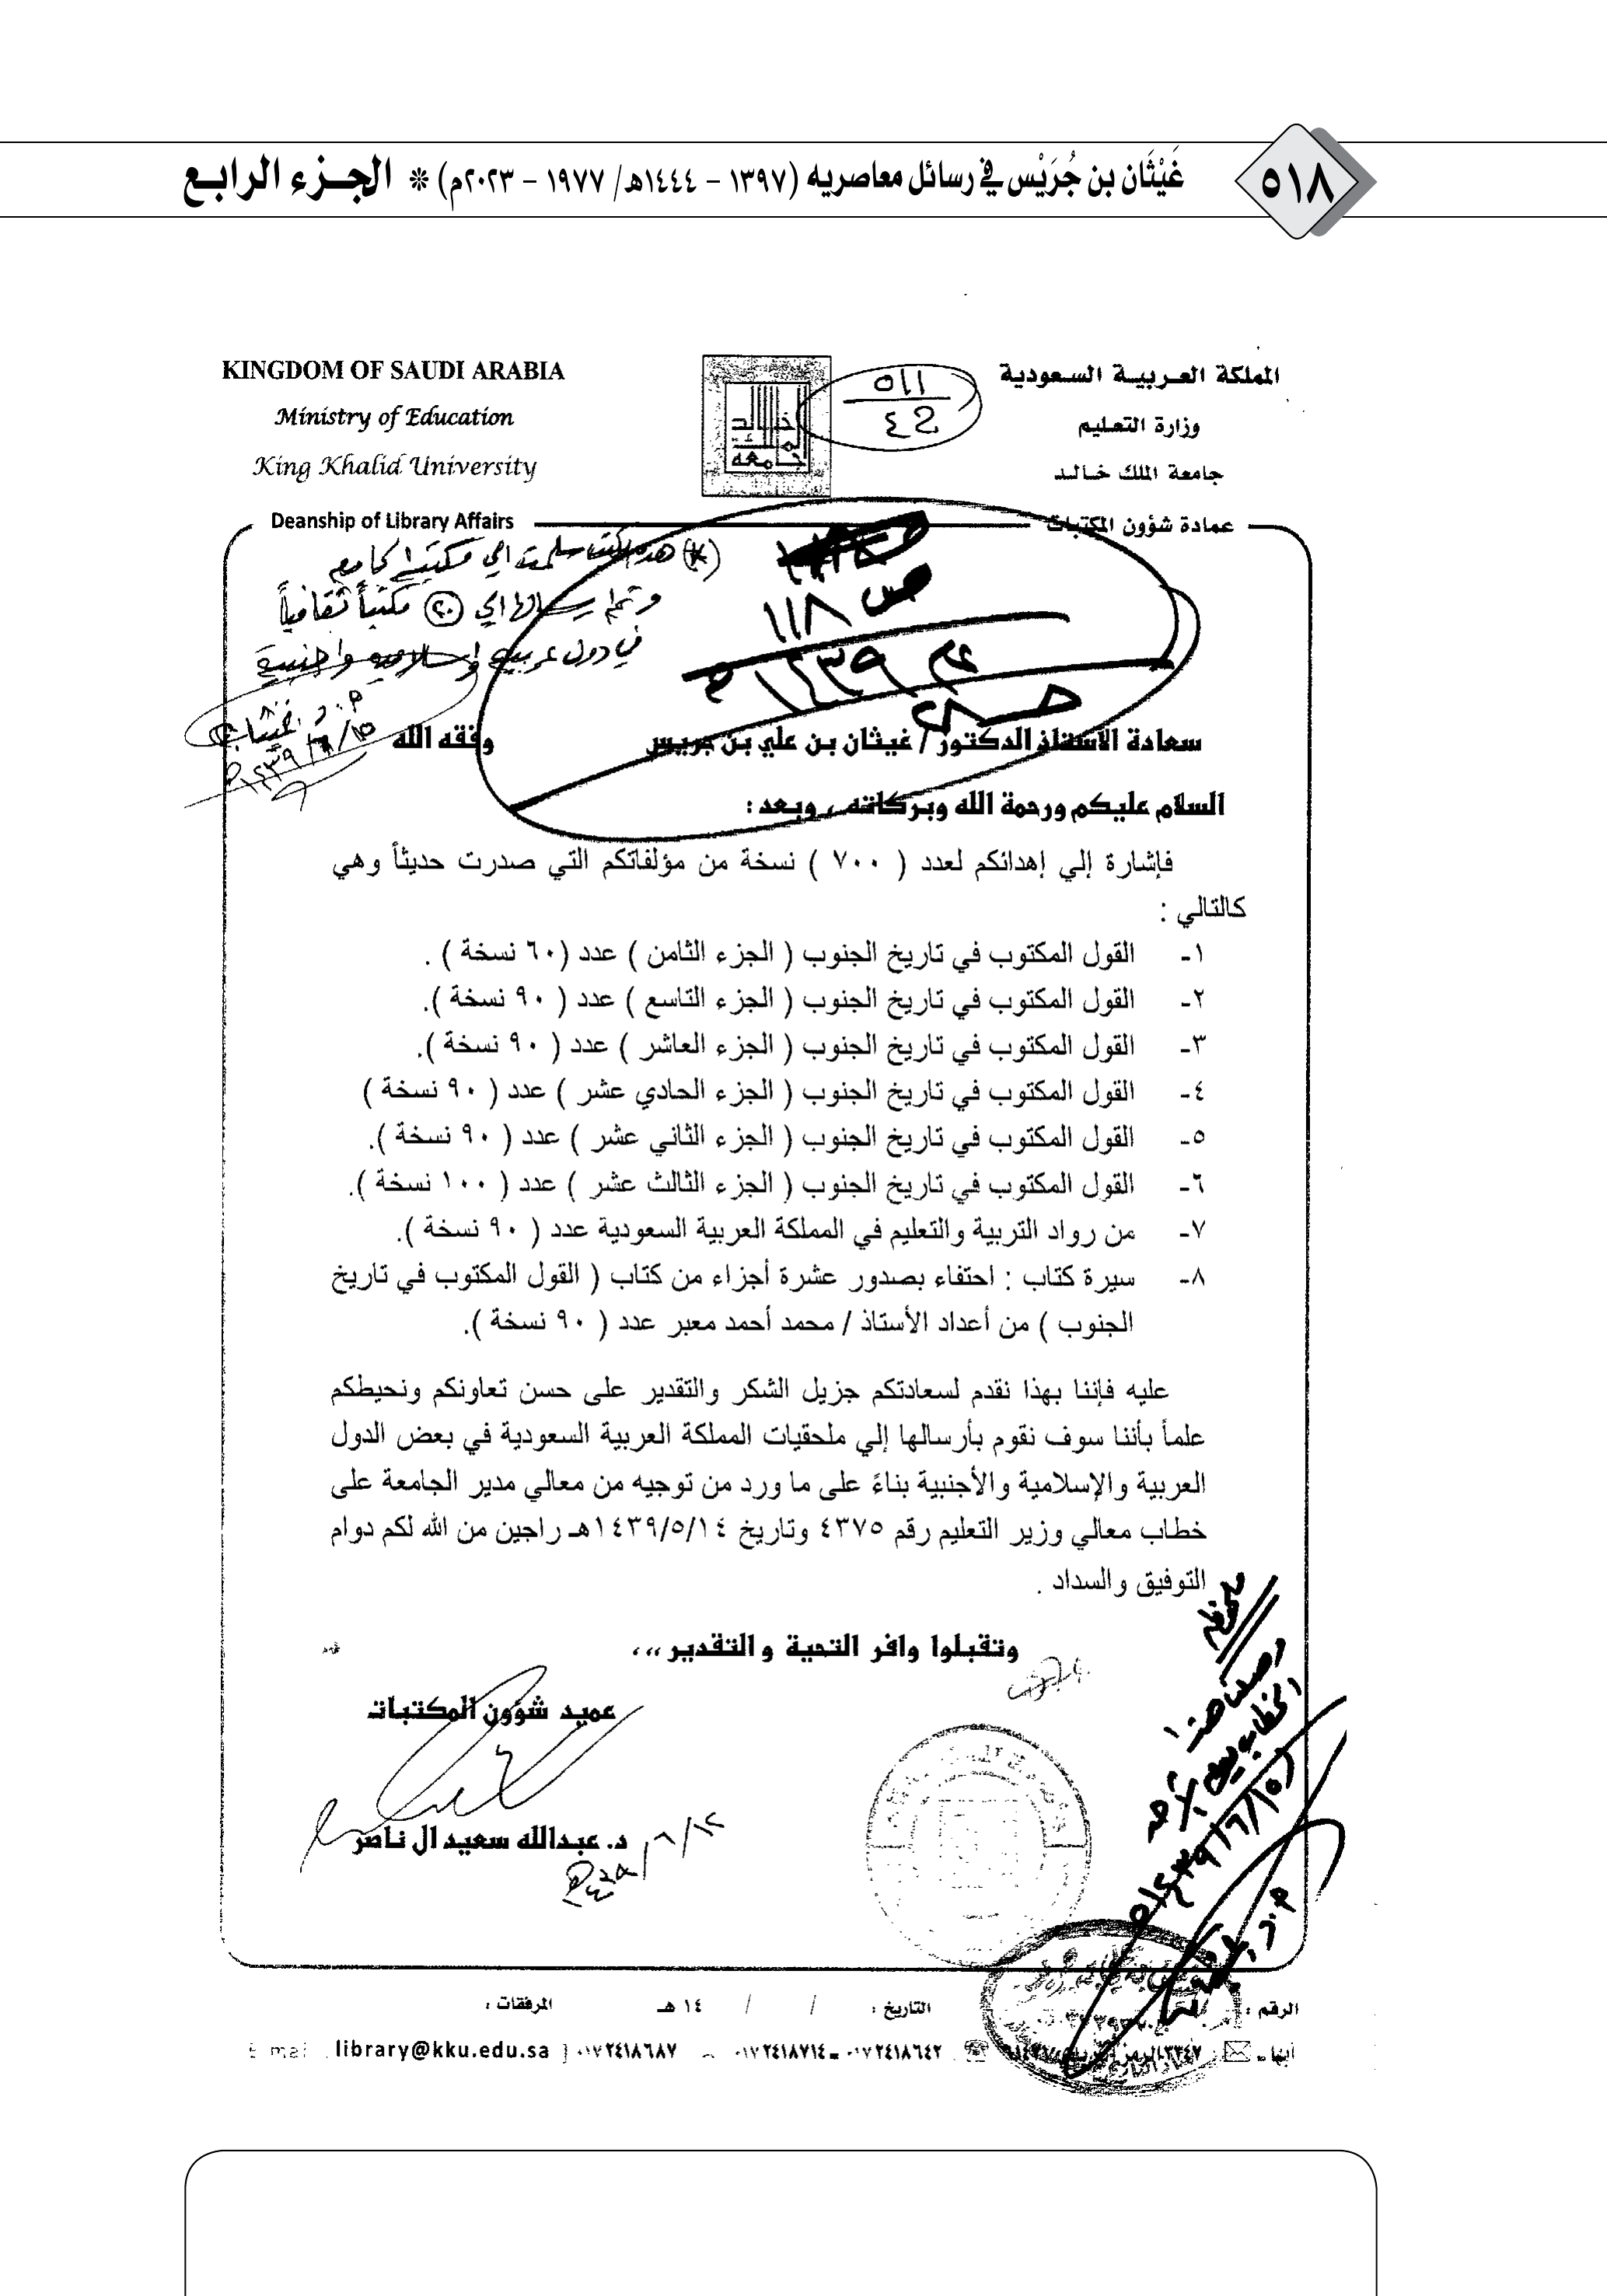 ٥١٨
غَيْثَان بن جُرَيْس في رسائل معاصريه (١٣٩٧ - ١٤٤٤هـ/ ١٩٧٧ - ٢٠٢٣م) * الجزء الرابع
المملكة العربية السعودية
وزارة التعليم
جامعة الملك خالد
عمادة شؤون المكتبات
KINGDOM OF SAUDI ARABIA
Ministry of Education
King Khalid University
Deanship of Library Affairs
٥١١
ص ١١٨
(*) هذه الكتب سلمت إلى مكتبة الجامعة
وتم إرسالها إلى (٢٠) مكتباً ثقافياً
في دول عربية وإسلامية وأجنبية
أ.د. غيثان
١٤٣٩/٦/١٥هـ
سعادة الأستاذ الدكتور / غيثان بن علي بن جريس وفقه الله
السلام عليكم ورحمة الله وبركاته ، وبعد :
فإشارة إلي إهدائكم لعدد ( ٧٠٠ ) نسخة من مؤلفاتكم التي صدرت حديثاً وهي
كالتالي :
١- القول المكتوب في تاريخ الجنوب ( الجزء الثامن ) عدد (٦٠ نسخة ) .
٢- القول المكتوب في تاريخ الجنوب ( الجزء التاسع ) عدد ( ٩٠ نسخة ).
٣- القول المكتوب في تاريخ الجنوب ( الجزء العاشر ) عدد ( ٩٠ نسخة ).
٤- القول المكتوب في تاريخ الجنوب ( الجزء الحادي عشر ) عدد ( ٩٠ نسخة )
٥- القول المكتوب في تاريخ الجنوب ( الجزء الثاني عشر ) عدد ( ٩٠ نسخة ).
٦- القول المكتوب في تاريخ الجنوب ( الجزء الثالث عشر ) عدد ( ١٠٠ نسخة ).
٧- من رواد التربية والتعليم في المملكة العربية السعودية عدد ( ٩٠ نسخة ).
٨- سيرة كتاب : احتفاء بصدور عشرة أجزاء من كتاب ( القول المكتوب في تاريخ
الجنوب ) من أعداد الأستاذ / محمد أحمد معبر عدد ( ٩٠ نسخة ).
عليه فإننا بهذا نقدم لسعادتكم جزيل الشكر والتقدير على حسن تعاونكم ونحيطكم
علماً بأننا سوف نقوم بأرسالها إلي ملحقيات المملكة العربية السعودية في بعض الدول
العربية والإسلامية والأجنبية بناءً على ما ورد من توجيه من معالي مدير الجامعة على
خطاب معالي وزير التعليم رقم ٤٣٧٥ وتاريخ ١٤٣٩/٥/١٤هـ راجين من الله لكم دوام
التوفيق والسداد .
وتقبلوا وافر التحية والتقدير ،،،
عميد شؤون المكتبات
د. عبدالله سعيد ال ناصر
الرقم : التاريخ : / / ١٤ هـ المرفقات :
أبها - ٠١٧٢٤١٨٦٤٢ - ٠١٧٢٤١٨٧١٤ ٠١٧٢٤١٨٦٨٧ library@kku.edu.sa